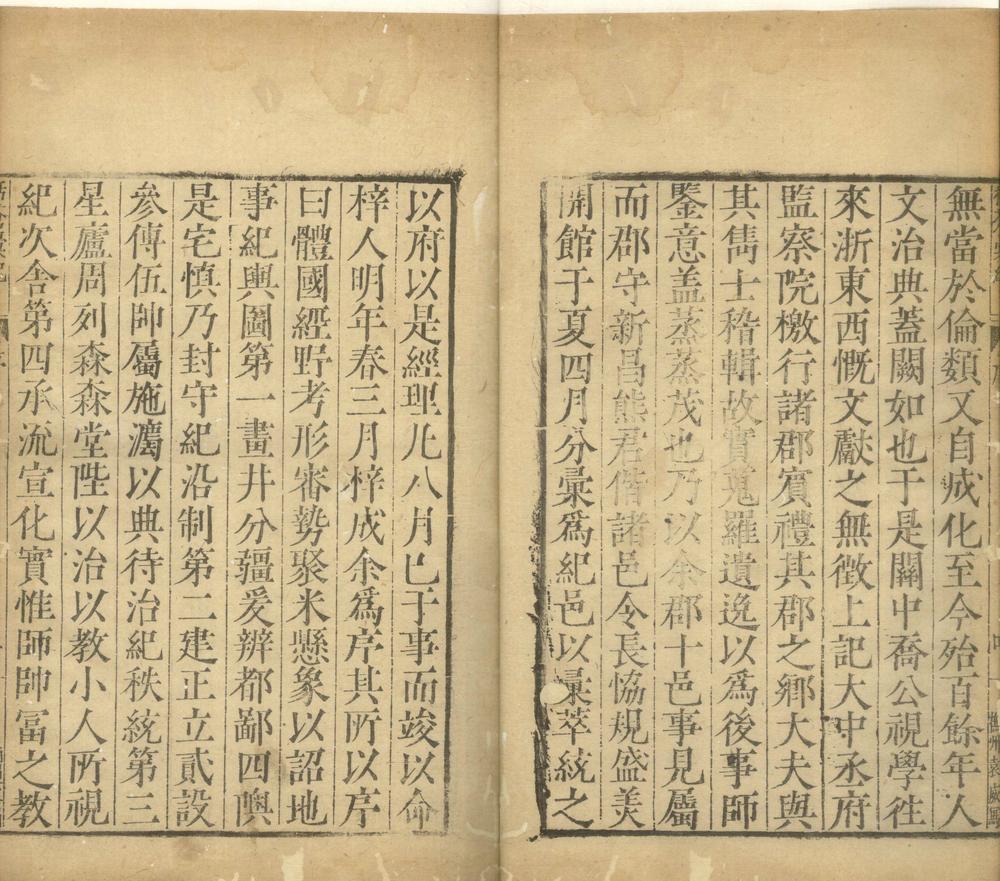 無當於倫類又自成化至今殆百餘年人
文治典蓋闕如也于是關中喬公視學徃
來浙東西慨文獻之無徴上記大中丞府
監察院檄行諸郡賓禮其郡之鄉大夫與
其雋士稽輯故實蒐羅遺逸以爲後事師
鑒意盖蒸蒸茂也乃以余郡十邑事見屬
而郡守新昌熊君偕諸邑令長恊規盛美
開館于夏四月分彚爲紀邑以彚萃統之
以府以是經理凡八月已于事而竣以命
梓人明年春三月梓成余爲序其所以序
曰體國經野考形審勢聚米懸象以詔地
事紀輿圖第一畫井分疆爰辨都鄙四輿
是宅慎乃封守紀沿制第二建正立貳設
參傳伍帥屬施灋以典待治紀秩統第三
星廬周列森森堂陛以治以教小人所視
紀次舍第四承流宣化實惟師帥富之教